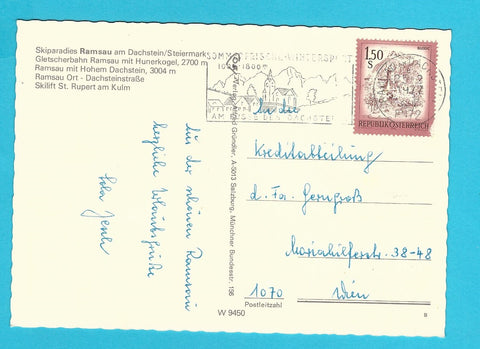 Skiparadies Ramsau am Dachstein/Steiermark
Gletscherbahn Ramsau mit Hunerkogel, 2700 m
Ramsau mit Hohem Dachstein, 3004 m
Ramsau Ort - Dachsteinstraße
Skilift St. Rupert am Kulm
SOMMERFRISCHE-WINTERSPORT
AM FUSSE DES DACHSTEIN
1.50
S
REPUBLIK ÖSTERREICH
Gründler, A-5013 Salzburg, Münchner Bundesstr. 156
Aus der schönen Ramsau
herzliche Urlaubsgrüße
An die
Kreditabteilung
d. Fa. Gerngroß
Mariahilferstr. 38-48
1070 Wien
Postleitzahl
W 9450
B